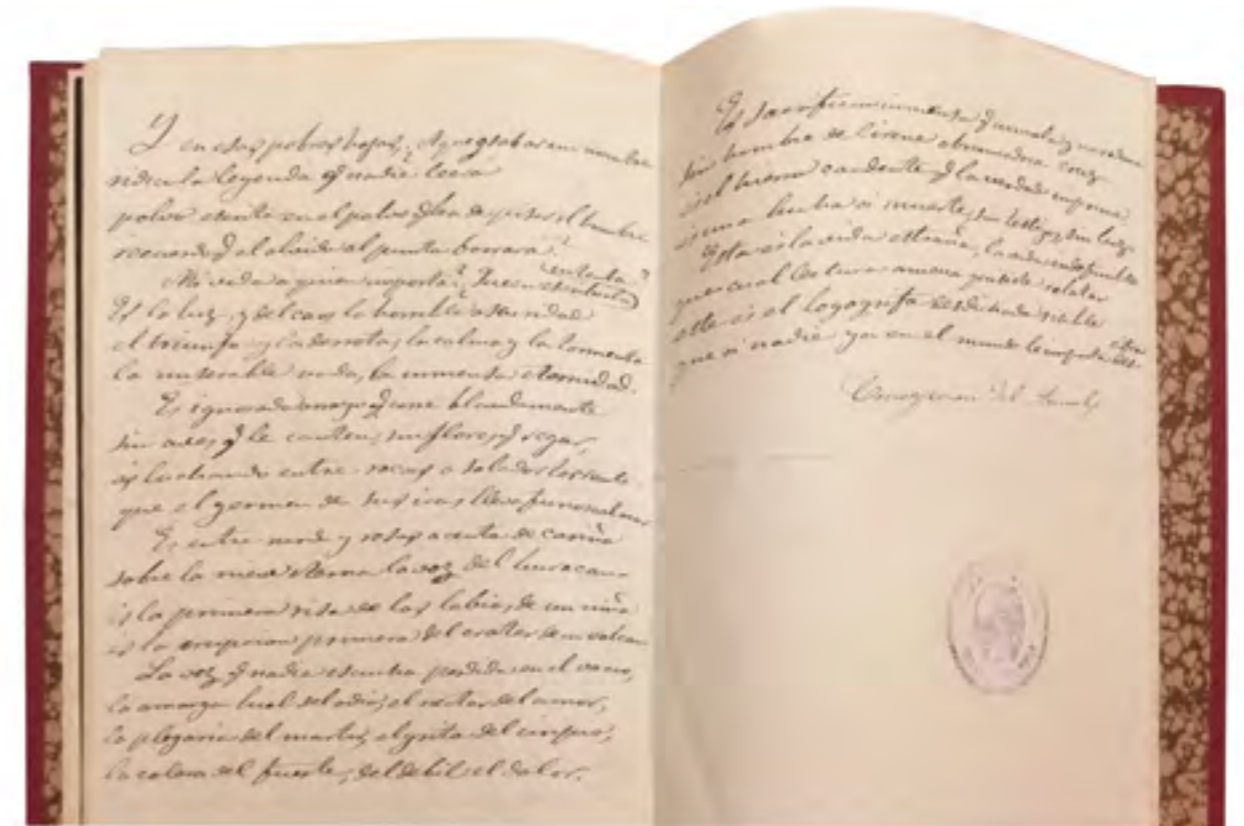 Y en esas pobres hojas, ¿ á grabar un nombre
ridicula leyenda q nadie leerá
polvo escrito en el polvo q ha de pisar el hombre
recuerdo q el olvido al punto borrará?
Mi vida a quien importa? Quien
en la luz, y del caos la horrible oscuridad
el triunfo y la derrota, la calma y la tormenta
la miserable vida, la inmensa eternidad.
Es ignorado arroyo q corre blandamente
sin aves q le canten, sin flores q regar,
es luchando entre rocas o salador torrente
que el germen de sus iras lleva furioso al mar
Es entre mirto y rosas acento de cariño
sobre la nieve eterna la voz del huracan
es la primera risa de los labios de un niño
es la erupcion primera del crater de un volcan
La voz q nadie escucha perdida en el vacio,
la amarga hiel del odio, el nectar del amor,
la plegaria del martir, el grito del impio,
la colera del fuerte, del debil el dolor.
Es sacrificio inmenso q
sin hombro de Cirene abrumadora cruz
es el hierro candente q la verdad imprime
es una lucha a muerte, sin testigos, sin luz
Esta es la vida estraña, la
que cual lectura amena pudiste relatar
este es el logogrifo
que a nadie ya en el mundo le importa